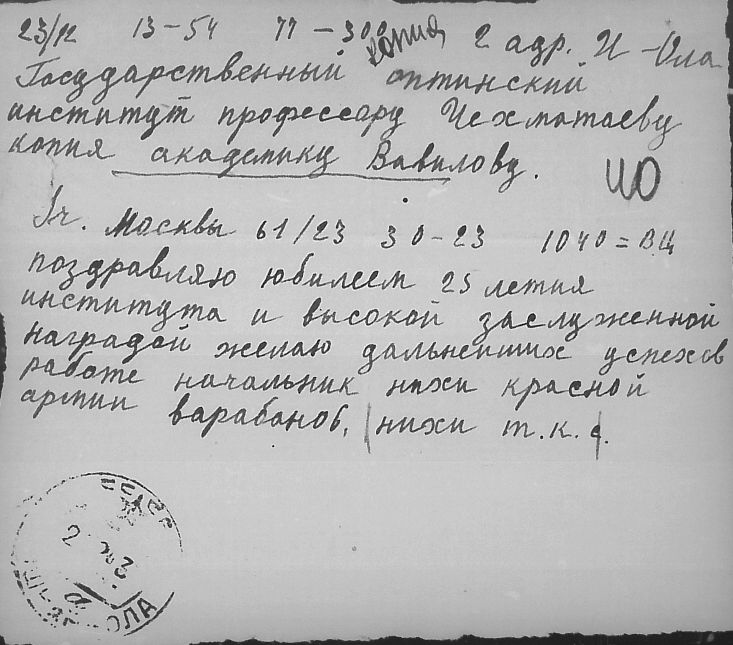 23/12 13-54 77-300 копия 2 адр. И-Ола
Государственный оптинский
институт профессору Чехматаеву
копия академику Вавилову.
ИО
Iч. Москвы 61/23 30-23 1040=ВЦ
поздравляю юбилеем 25 летия
института и высокой заслуженной
наградой желаю дальнейших успехов
работе начальник нихи красной
армии варабанов, нихи т.к.
ОЛА